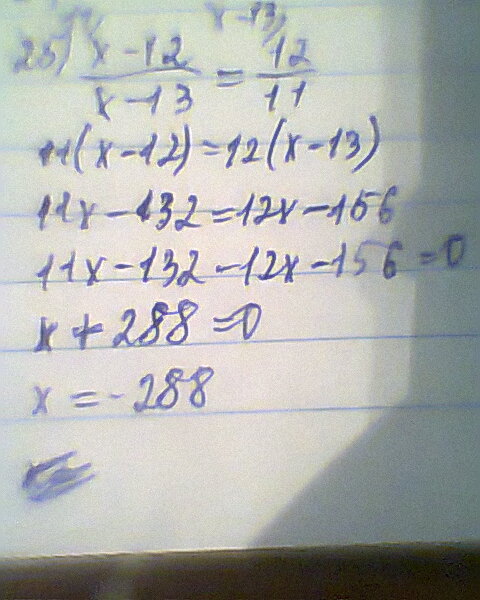 x-13/
25) x-12 / x-13 = 12 / 11
11(x-12)=12(x-13)
11x-132=12x-156
11x-132-12x-156=0
x+288=0
x=-288